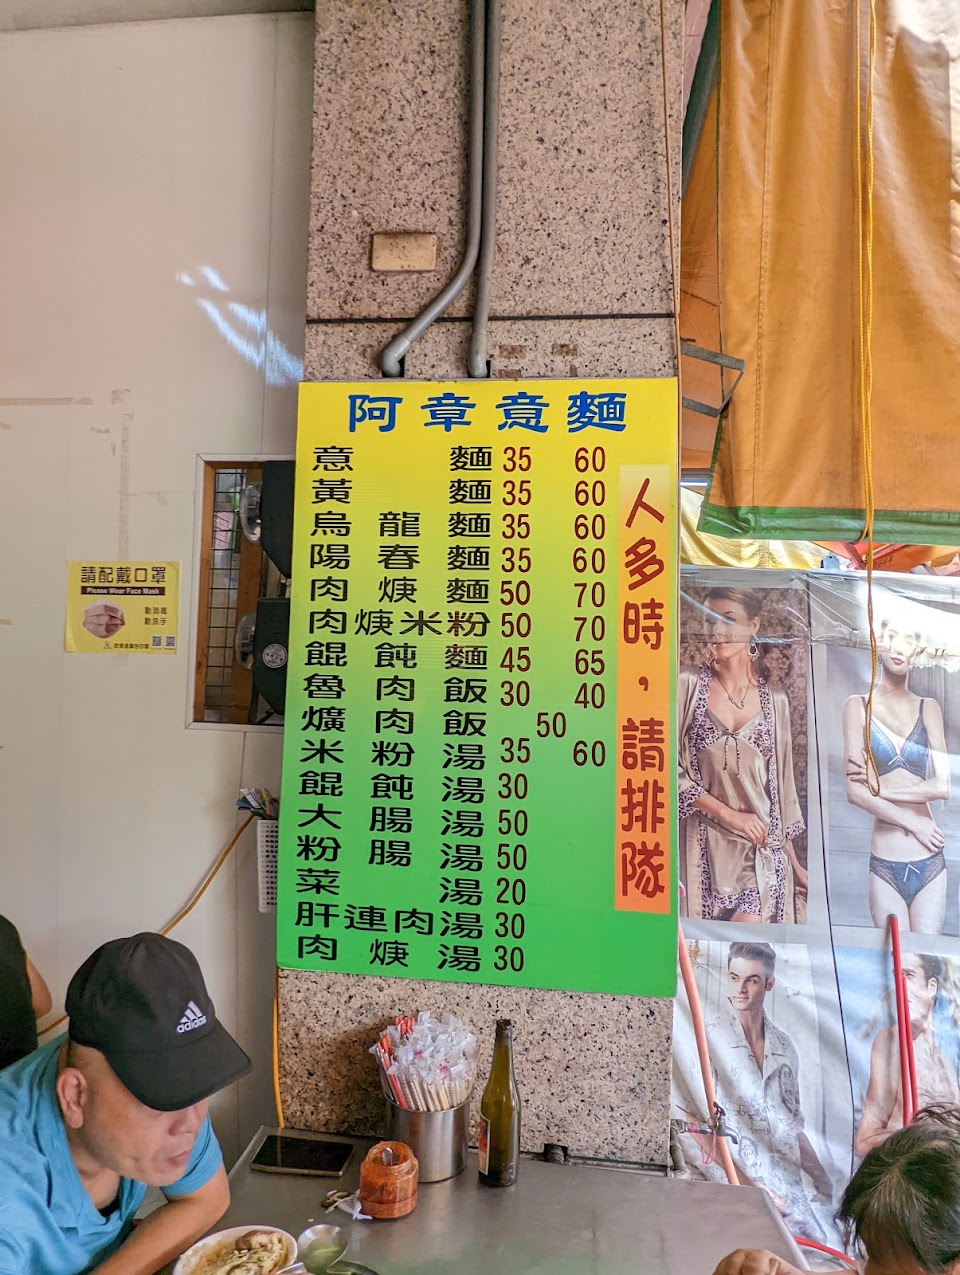 阿章意麵
意麵 35 60
黃麵 35 60
烏龍麵 35 60
陽春麵 35 60
肉焿麵 50 70
肉焿米粉 50 70
餛飩麵 45 65
魯肉飯 30 40
爌肉飯 50
米粉湯 35 60
餛飩湯 30
大腸湯 50
粉腸湯 50
菜湯 20
肝連肉湯 30
肉焿湯 30
人多時，請排隊
請配戴口罩
Please Wear Face Mask
勤消毒
勤洗手
adidas